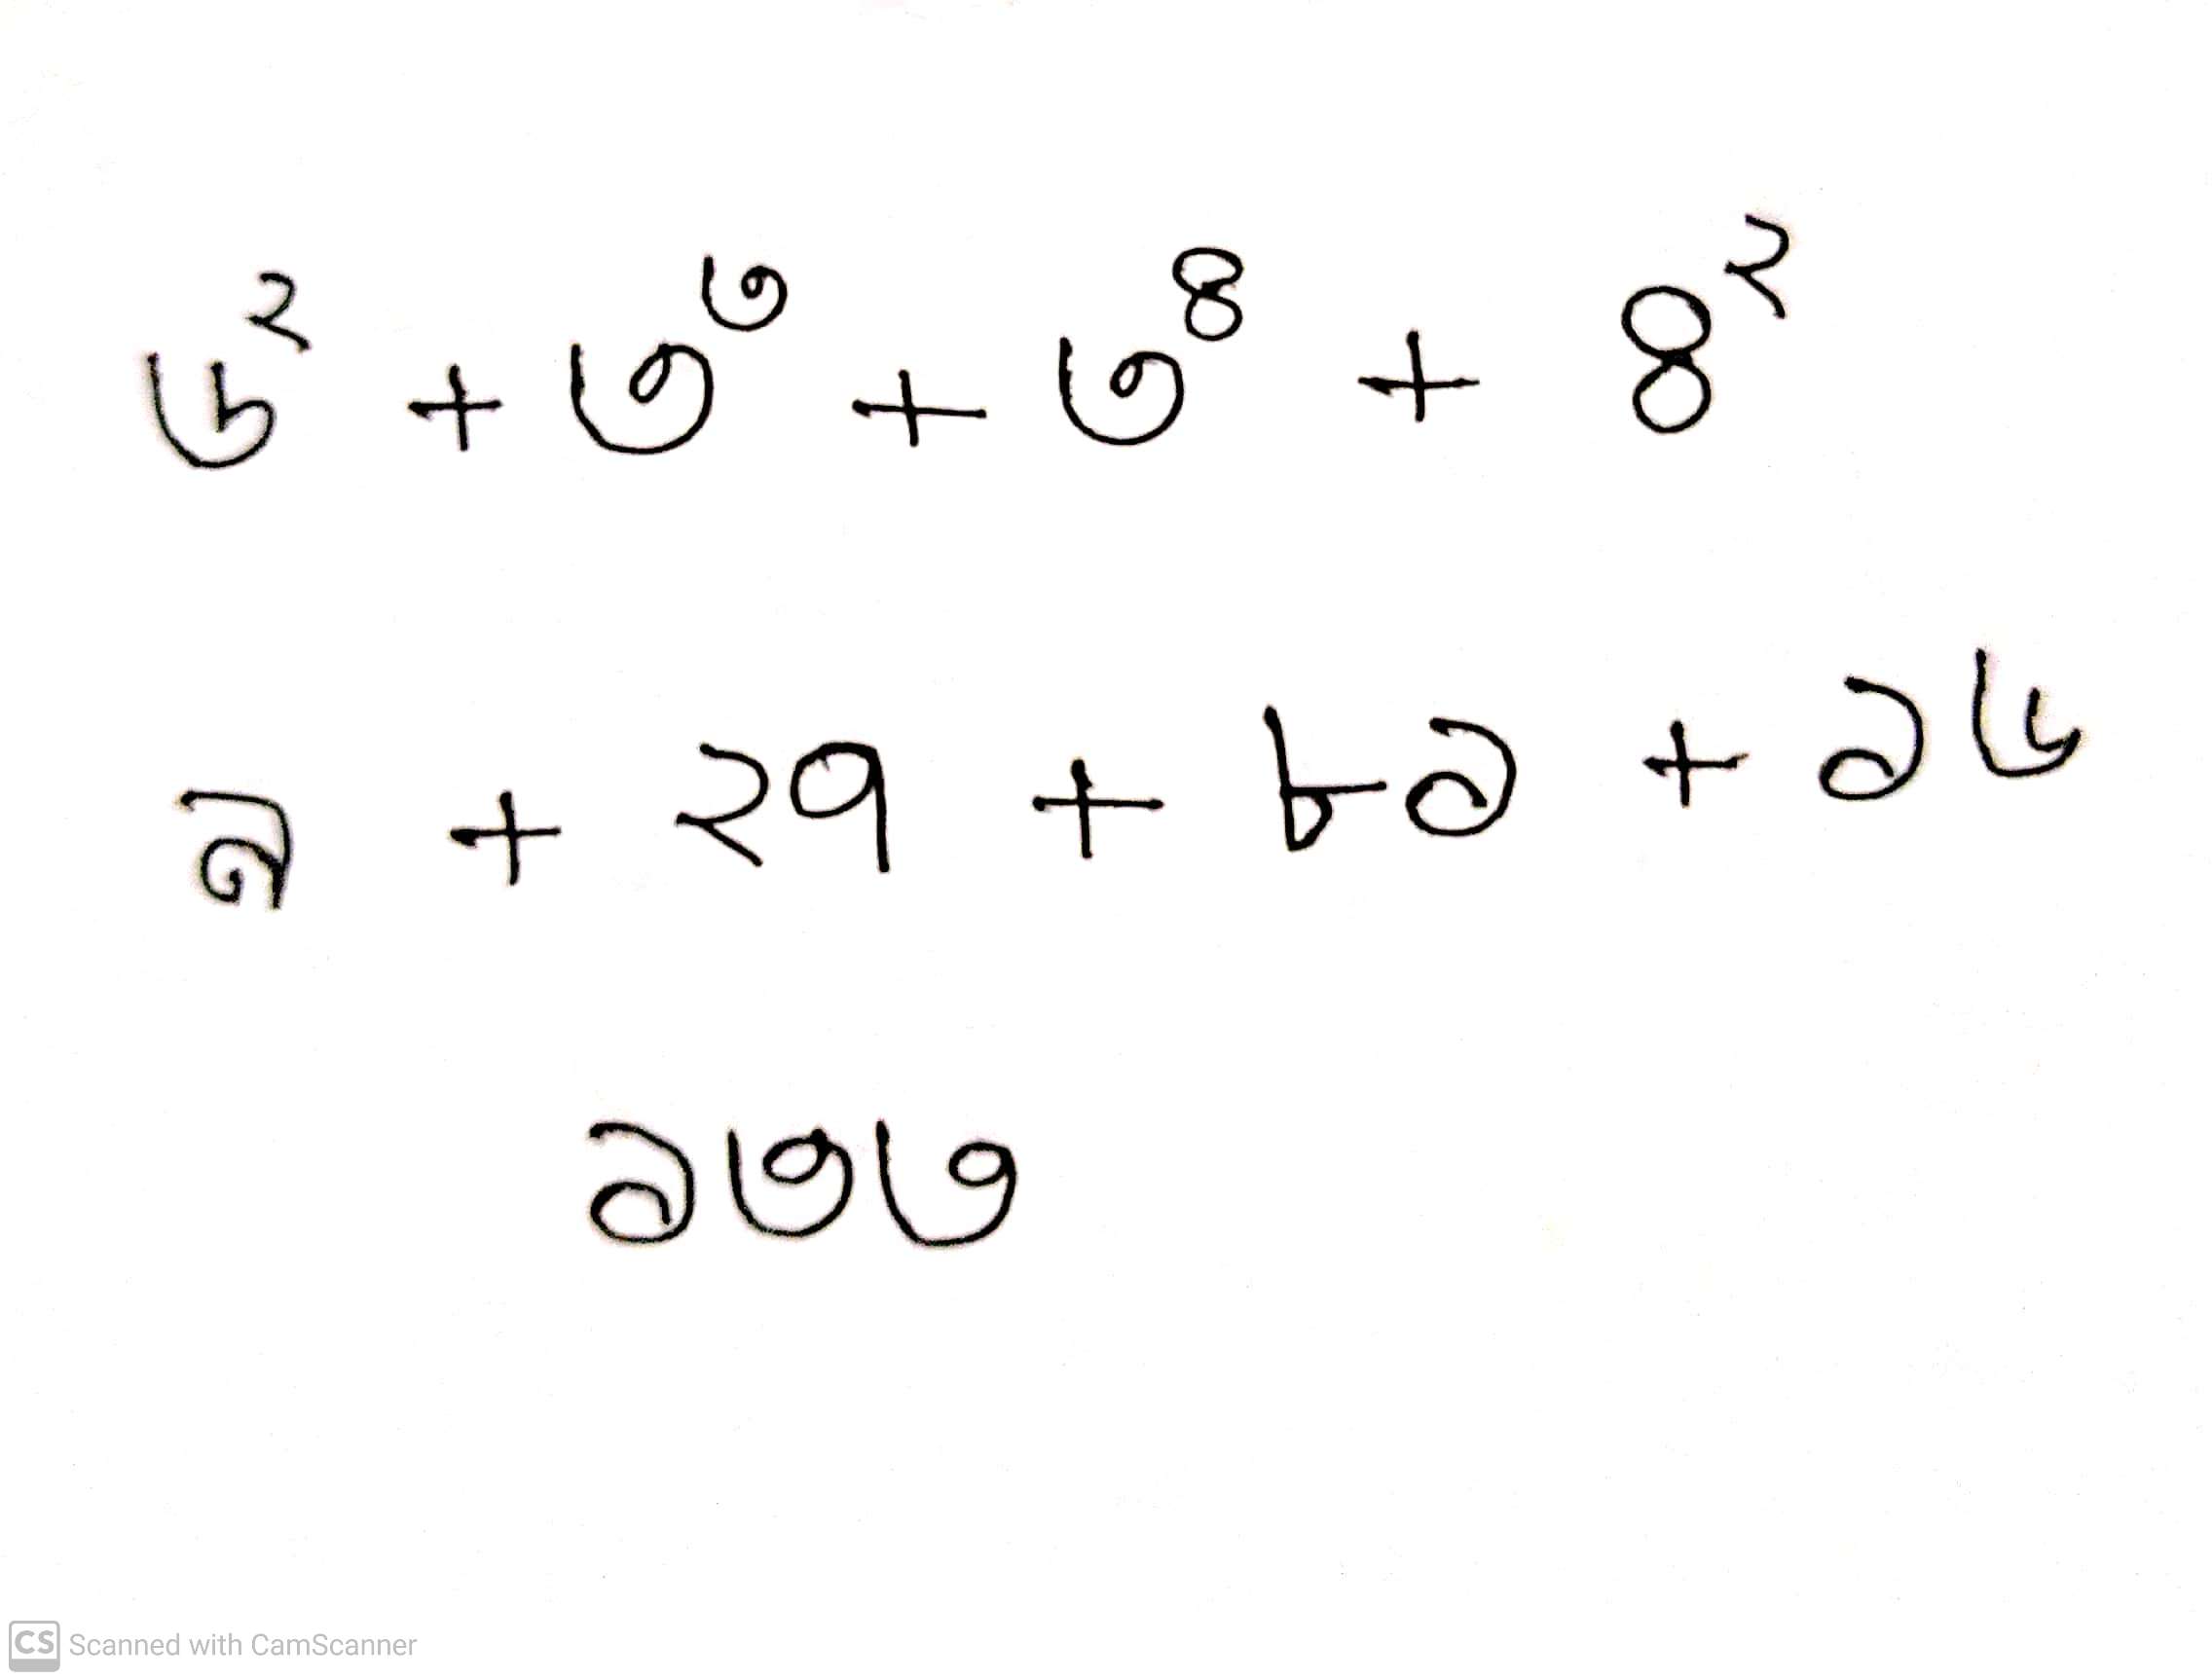 ৬² + ৩^৩ + ৩^৪ + ৪²
৯ + ২৭ + ৮১ + ১৬
১৩৩
CS Scanned with CamScanner